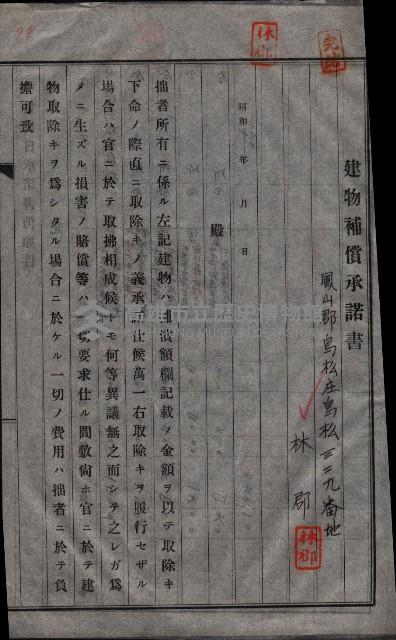 建物補償承諾書
鳳山郡鳥松庄鳥松三二九番地
林郡
林郡
昭和 年 月 日
殿
拙者所有ニ係ル左記建物ハ補償額欄記載ノ金額ヲ以テ取除キ
下命ノ際直ニ取除キノ義承諾仕候萬一右取除キヲ履行セザル
場合ハ官ニ於テ取拂相成候トモ何等異議無之而シテ之レガ爲
メニ生ズル損害ノ賠償等ハ一切要求仕ル間敷尙ホ官ニ於テ建
物取除キヲ爲シタル場合ニ於ケル一切ノ費用ハ拙者ニ於テ負
擔可致
林郡
高雄市立歷史博物館